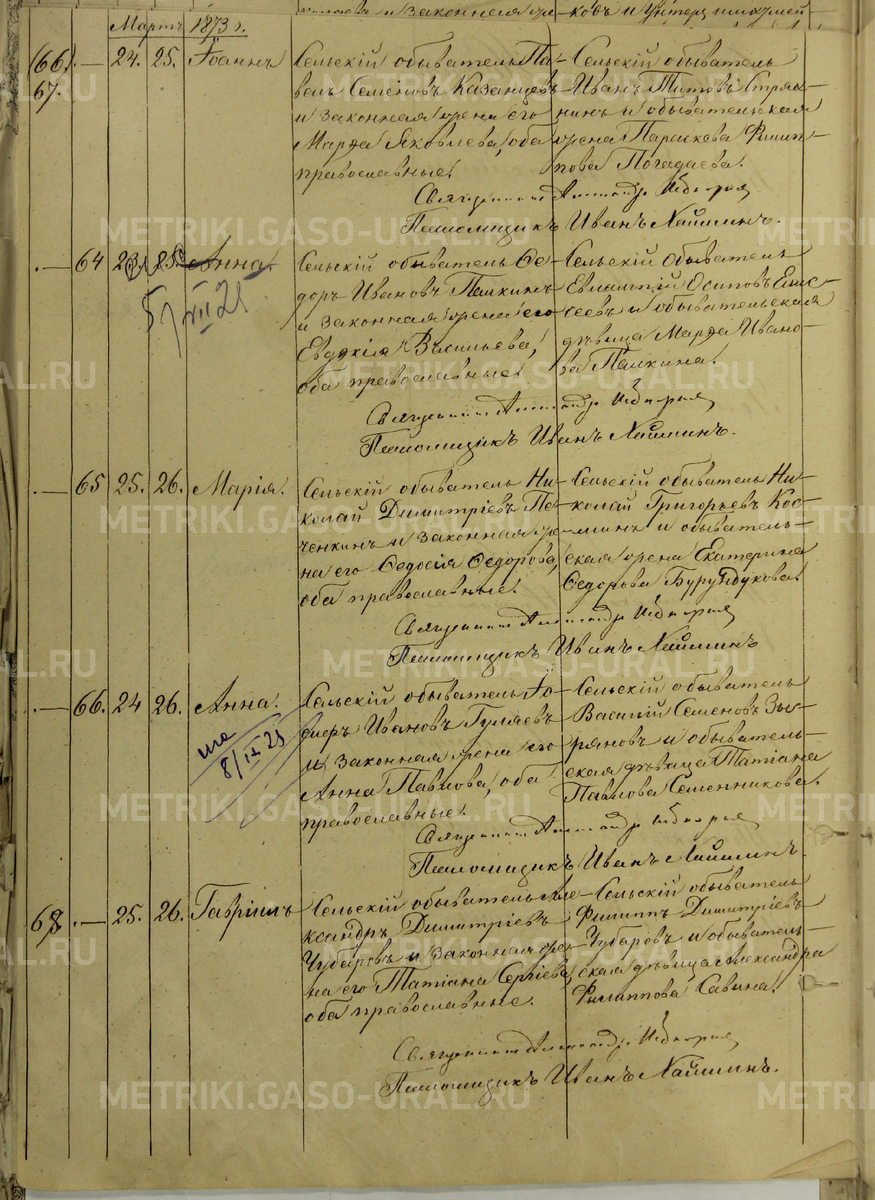 Мартъ 1873 г.
(66) — 24. 25. Іоаннъ
67.
Сельскій обыватель Па-
велъ Семеновъ Казанцевъ
и законная жена его
Марѳа Яковлева, оба
православные.
Сельскій обыватель
Иванъ Титовъ Стряп-
нинъ и обывательская
жена Параскева Филип-
пова Погадаева.
Священникъ Александр
Псаломщикъ Иванъ Хаминъ.
— 64 25. Анна.
5/VII 21
Сельскій обыватель Ѳе-
доръ Ивановъ Пашкинъ
и законная жена его
Евдокія Васильева,
оба православные.
Сельскій обыватель
Евлампій Осиповъ Елис-
сеевъ и обывательская
дѣвица Марѳа Ивано-
ва Пашкина.
Священникъ Александр
Псаломщикъ Иванъ Хаминъ.
— 65 25. 26. Марія.
Сельскій обыватель Ни-
колай Димитріевъ Пе-
ченкинъ и законная же-
на его Ѳедосія Ѳедорова,
оба православные.
Сельскій обыватель Ни-
колай Григорьевъ Кос-
минъ и обыватель-
ская жена Екатерина
Ѳедорова Бурундукова.
Священникъ Александр
Псаломщикъ Иванъ Хаминъ
— 66. 24 26. Анна.
8/IX 23
Сельскій обыватель
Ивановъ Гуляевъ
и законная жена его
Анна Павлова, оба
православные.
Сельскій обыватель
Василій Семеновъ Зы-
ряновъ и обыватель-
ская дѣвица Татіана
Павлова Семенникова.
Священникъ Александр
Псаломщикъ Иванъ Хаминъ.
68 — 25. 26. Гавріилъ
Сельскій обыватель Але-
ксандръ Димитріевъ
Чубаровъ и законная же-
на его Татіана Сергіева,
оба православные.
Сельскій обыватель
Филиппъ Димитріевъ
Чубаровъ и обыватель-
ская дѣвица Александра
Филиппова Савина.
Священникъ Александр
Псаломщикъ Иванъ Хаминъ.
METRIKI.GASO-URAL.RU